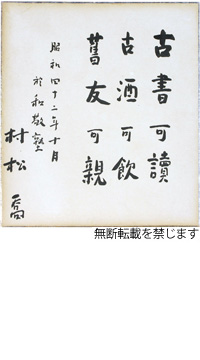 古書可讀
古酒可飲
舊友可親
昭和四十二年十月
於和敬塾
村松喬
無断転載を禁じます